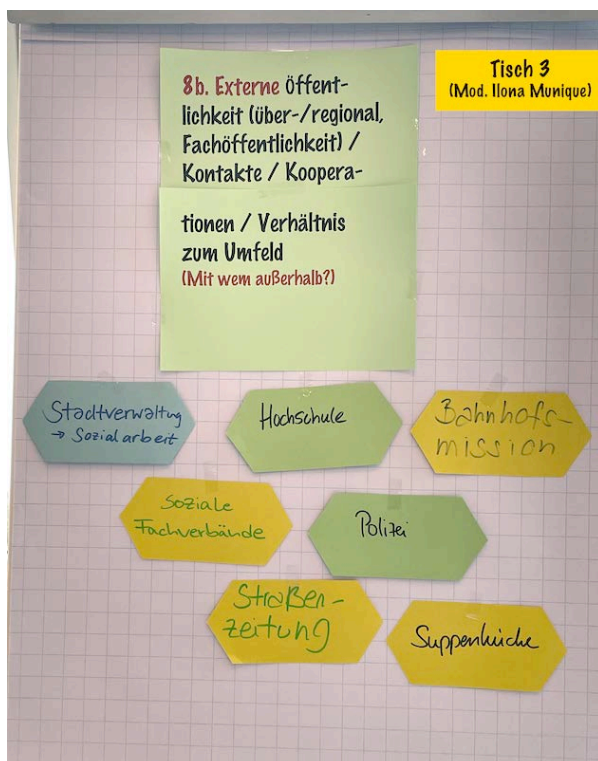 8b. Externe Öffent-
lichkeit (über-/regional,
Fachöffentlichkeit) /
Kontakte / Koopera-
tionen / Verhältnis
zum Umfeld
(Mit wem außerhalb?)
Tisch 3
(Mod. Ilona Munique)
Stadtverwaltung
→ Sozialarbeit
Hochschule
Bahnhofs-
mission
Soziale
Fachverbände
Polizei
Straßen-
zeitung
Suppenküche